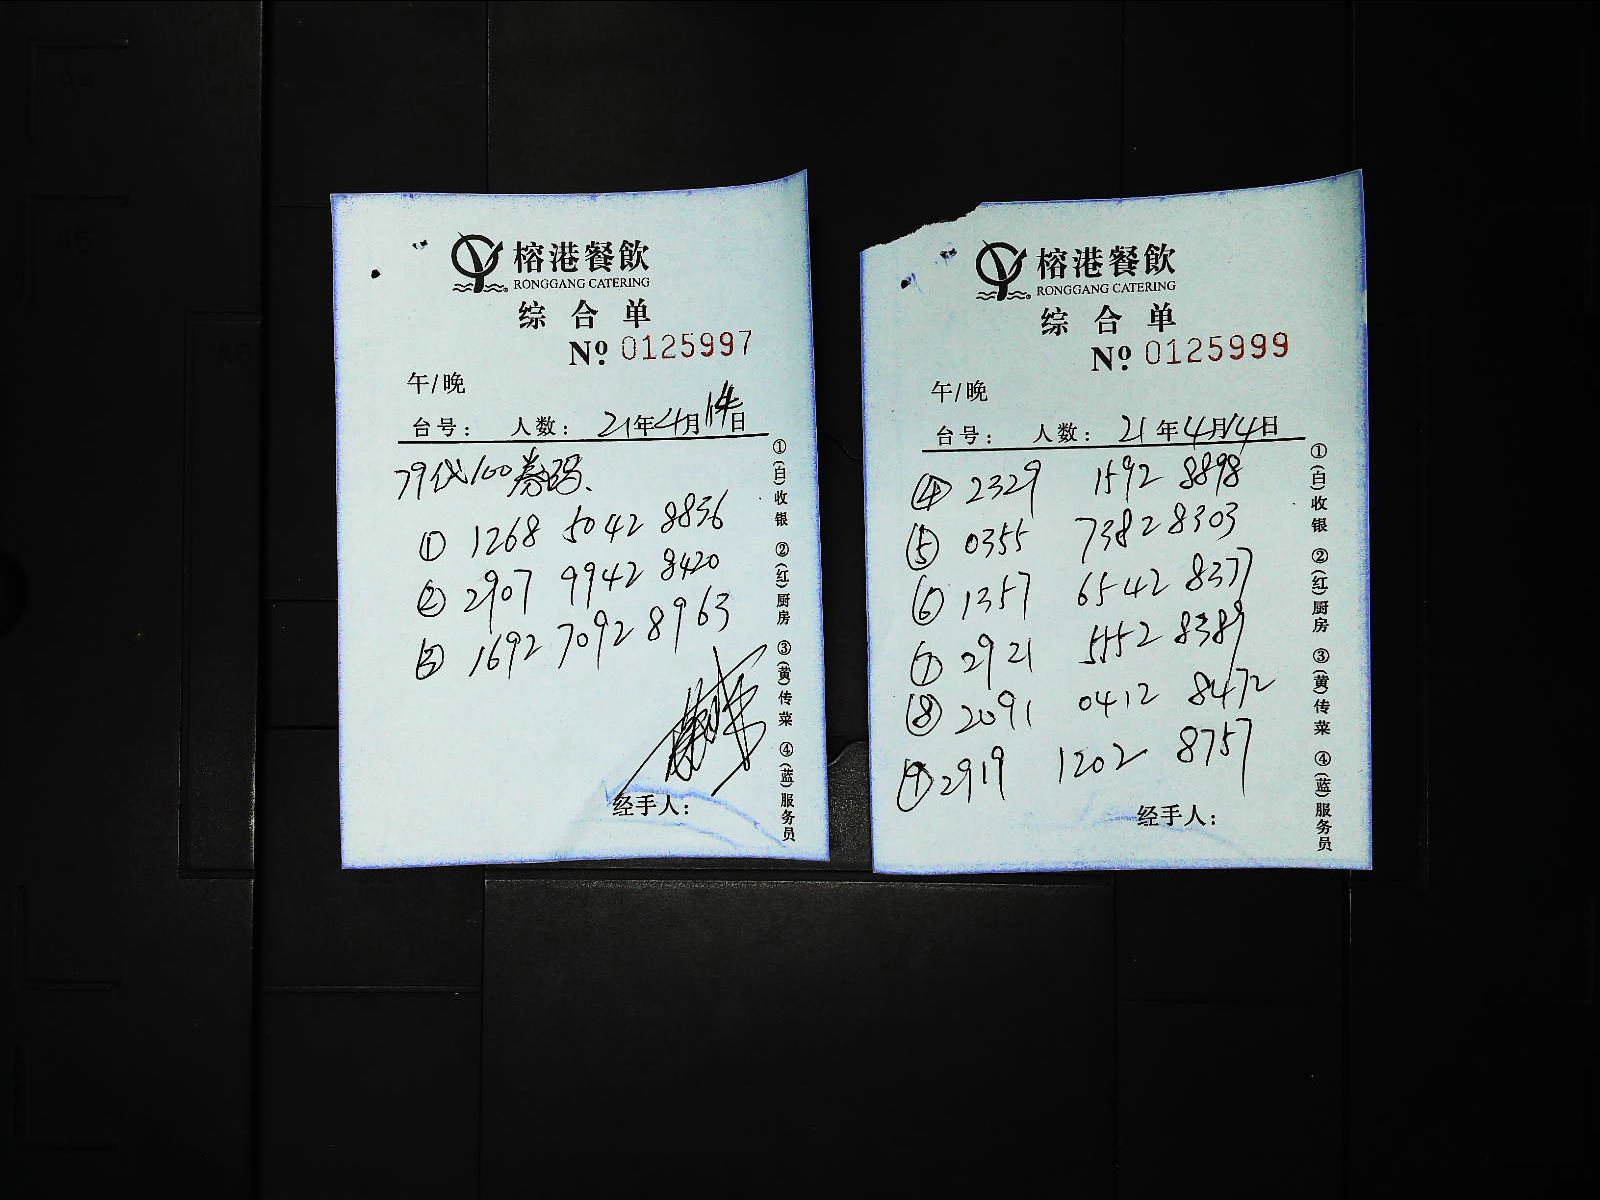 榕港餐飲
RONGGANG CATERING
综合单
No. 0125997
午/晚
台号： 人数： 21年4月14日
79代100券码、
① 1268 5042 8836
② 2907 9942 8420
③ 1692 7092 8963
经手人：
①(白)收银 ②(红)厨房 ③(黄)传菜 ④(蓝)服务员
榕港餐飲
RONGGANG CATERING
综合单
No. 0125999
午/晚
台号： 人数： 21年4月14日
④ 2329 1592 8898
⑤ 0355 7382 8303
⑥ 1357 6542 8377
⑦ 2921 5552 8389
⑧ 2091 0412 8472
⑨ 2919 1202 8757
经手人：
①(白)收银 ②(红)厨房 ③(黄)传菜 ④(蓝)服务员